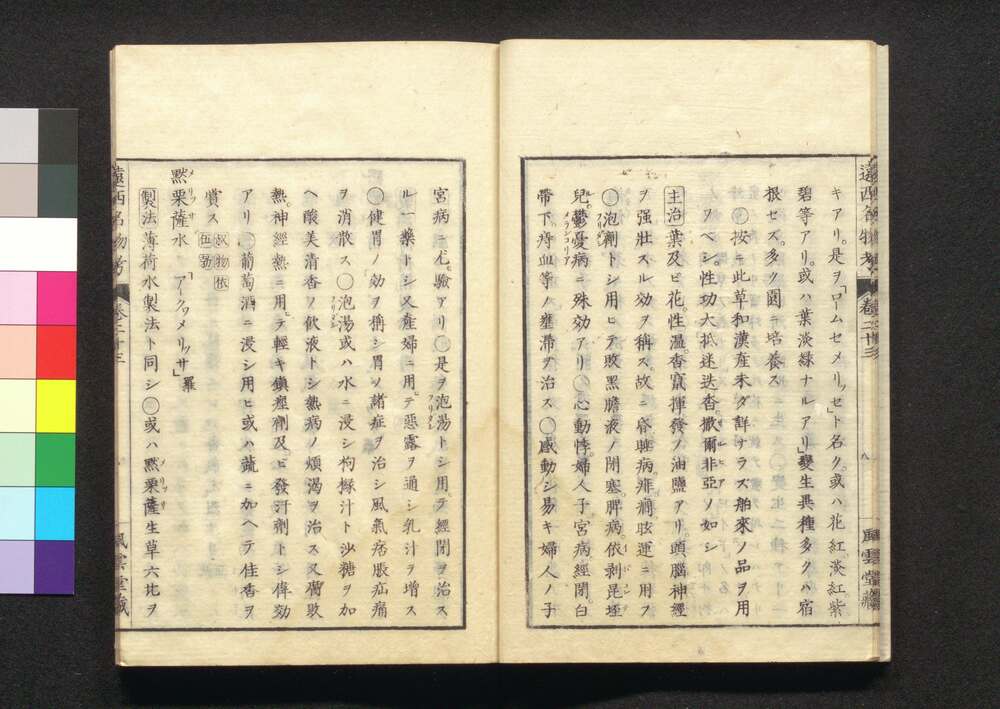 遠西名物考 卷二十三 八 風雲堂藏
キアリ。是ヲ「ロームセメリッセ」ト名ク。或ハ花紅。淡紅紫
碧等アリ。或ハ葉淡緑ナルアリ」變生異種多クハ宿
根セズ。多ク園ニ培養ス
○按ニ此草和漢産未ダ詳ナラズ舶來ノ品ヲ用
ヲベシ。性功大抵迷迭香。撒爾非亞ノ如シ
主治 葉及ビ花。性温。香竄揮發ノ油鹽アリ。頭腦神經
ヲ强壯スル効ヲ稱ス。故ニ昏睡病。痱。癇。眩運ニ用ヲ
○泡劑トシ用ヒテ敗黑膽液ノ閉塞。脾病。依剥昆垤
兒。鬱憂病ニ殊効アリ○心動悸。婦人子宮病。經閉。白
帶下。痔血等ノ壅滯ヲ治ス○感動シ易キ婦人ノ子
宮病ニ尤。驗アリ○是ヲ泡湯トシ用テ經閉ヲ治ス
ル一藥トシ又産婦ニ用テ惡露ヲ通シ乳汁ヲ增ス
○健胃ノ効ヲ稱シ胃ノ諸症ヲ治シ風氣痞脹疝痛
ヲ消散ス○泡湯或ハ水ニ浸シ枸櫞汁ト沙糖ヲ加
ヘ酸美清香ノ飲液トシ熱病ノ煩渴ヲ治ス又腐敗
熱。神經熱ニ用テ輕キ鎮痙劑及ビ發汗劑トシ偉効
アリ○葡萄酒ニ浸シ用ヒ或ハ蔬ニ加ヘテ佳香ヲ
賞ス
默栗薩水 「アークワメリッサ」羅
製法 薄荷水製法ト同シ○或ハ默栗薩生草六比ヲ
遠西名物考 卷二十三 風雲堂藏